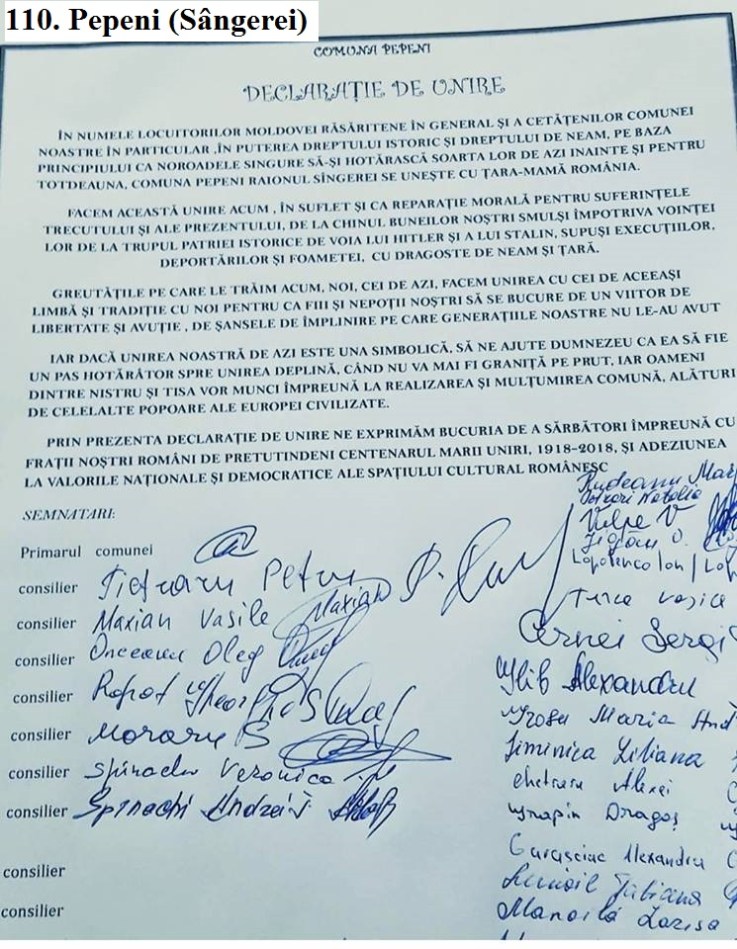 110. Pepeni (Sângerei)
COMUNA PEPENI
DECLARAȚIE DE UNIRE
ÎN NUMELE LOCUITORILOR MOLDOVEI RĂSĂRITENE ÎN GENERAL ȘI A CETĂȚENILOR COMUNEI
NOASTRE ÎN PARTICULAR ,ÎN PUTEREA DREPTULUI ISTORIC ȘI DREPTULUI DE NEAM, PE BAZA
PRINCIPIULUI CA NOROADELE SINGURE SĂ-ȘI HOTĂRASCĂ SOARTA LOR DE AZI INAINTE ȘI PENTRU
TOTDEAUNA, COMUNA PEPENI RAIONUL SÎNGEREI SE UNEȘTE CU ȚARA-MAMĂ ROMÂNIA.
FACEM ACEASTĂ UNIRE ACUM , ÎN SUFLET ȘI CA REPARAȚIE MORALĂ PENTRU SUFERINȚELE
TRECUTULUI ȘI ALE PREZENTULUI, DE LA CHINUL BUNEILOR NOȘTRI SMULȘI ÎMPOTRIVA VOINȚEI
LOR DE LA TRUPUL PATRIEI ISTORICE DE VOIA LUI HITLER ȘI A LUI STALIN, SUPUȘI EXECUȚIILOR,
DEPORTĂRILOR ȘI FOAMETEI, CU DRAGOSTE DE NEAM ȘI ȚARĂ.
GREUTĂȚILE PE CARE LE TRĂIM ACUM, NOI, CEI DE AZI, FACEM UNIREA CU CEI DE ACEEAȘI
LIMBĂ ȘI TRADIȚIE CU NOI PENTRU CA FIII ȘI NEPOȚII NOȘTRI SĂ SE BUCURE DE UN VIITOR DE
LIBERTATE ȘI AVUȚIE , DE ȘANSELE DE ÎMPLINIRE PE CARE GENERAȚIILE NOASTRE NU LE-AU AVUT
IAR DACĂ UNIREA NOASTRĂ DE AZI ESTE UNA SIMBOLICĂ, SĂ NE AJUTE DUMNEZEU CA EA SĂ FIE
UN PAS HOTĂRÂTOR SPRE UNIREA DEPLINĂ, CÂND NU VA MAI FI GRANIȚĂ PE PRUT, IAR OAMENI
DINTRE NISTRU ȘI TISA VOR MUNCI ÎMPREUNĂ LA REALIZAREA ȘI MULȚUMIREA COMUNĂ, ALĂTURI
DE CELELALTE POPOARE ALE EUROPEI CIVILIZATE.
PRIN PREZENTA DECLARAȚIE DE UNIRE NE EXPRIMĂM BUCURIA DE A SĂRBĂTORI ÎMPREUNĂ CU
FRAȚII NOȘTRI ROMÂNI DE PRETUTINDENI CENTENARUL MARII UNIRI, 1918-2018, ȘI ADEZIUNEA
LA VALORILE NAȚIONALE ȘI DEMOCRATICE ALE SPAȚIULUI CULTURAL ROMÂNESC
SEMNATARI:
Primarul comunei
consilier Petru
consilier Marian Vasile Marian
consilier Oleg
consilier Gheorghe
consilier Moraru S
consilier Spinachi Veronica
consilier Spinachi Andrei
consilier
consilier
Natalia
Vulpe V
Ion
Turca Vasile
Cernei Sergi
Glib Alexandru
Maria
Jiminica Liliana
Alexei
Dragoș
Alexandru
Iubiana
Manoilă Larisa